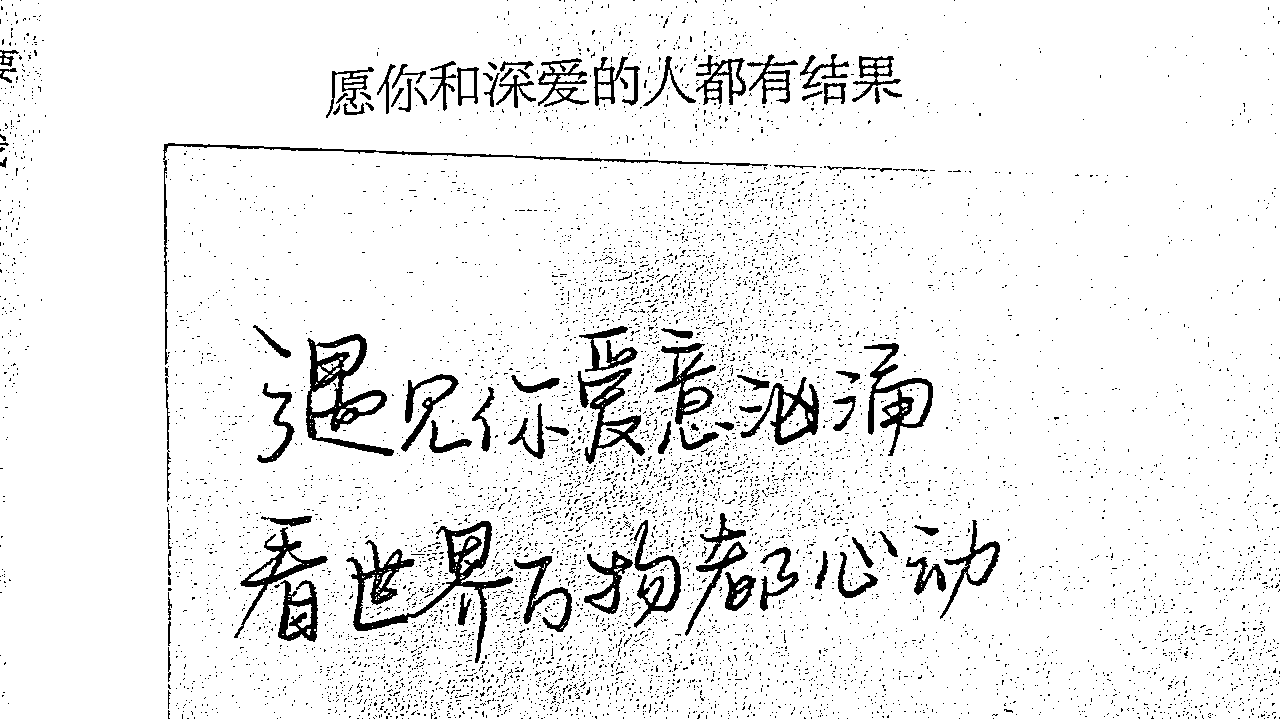 愿你和深爱的人都有结果
遇见你爱意汹涌
看世界万物都心动